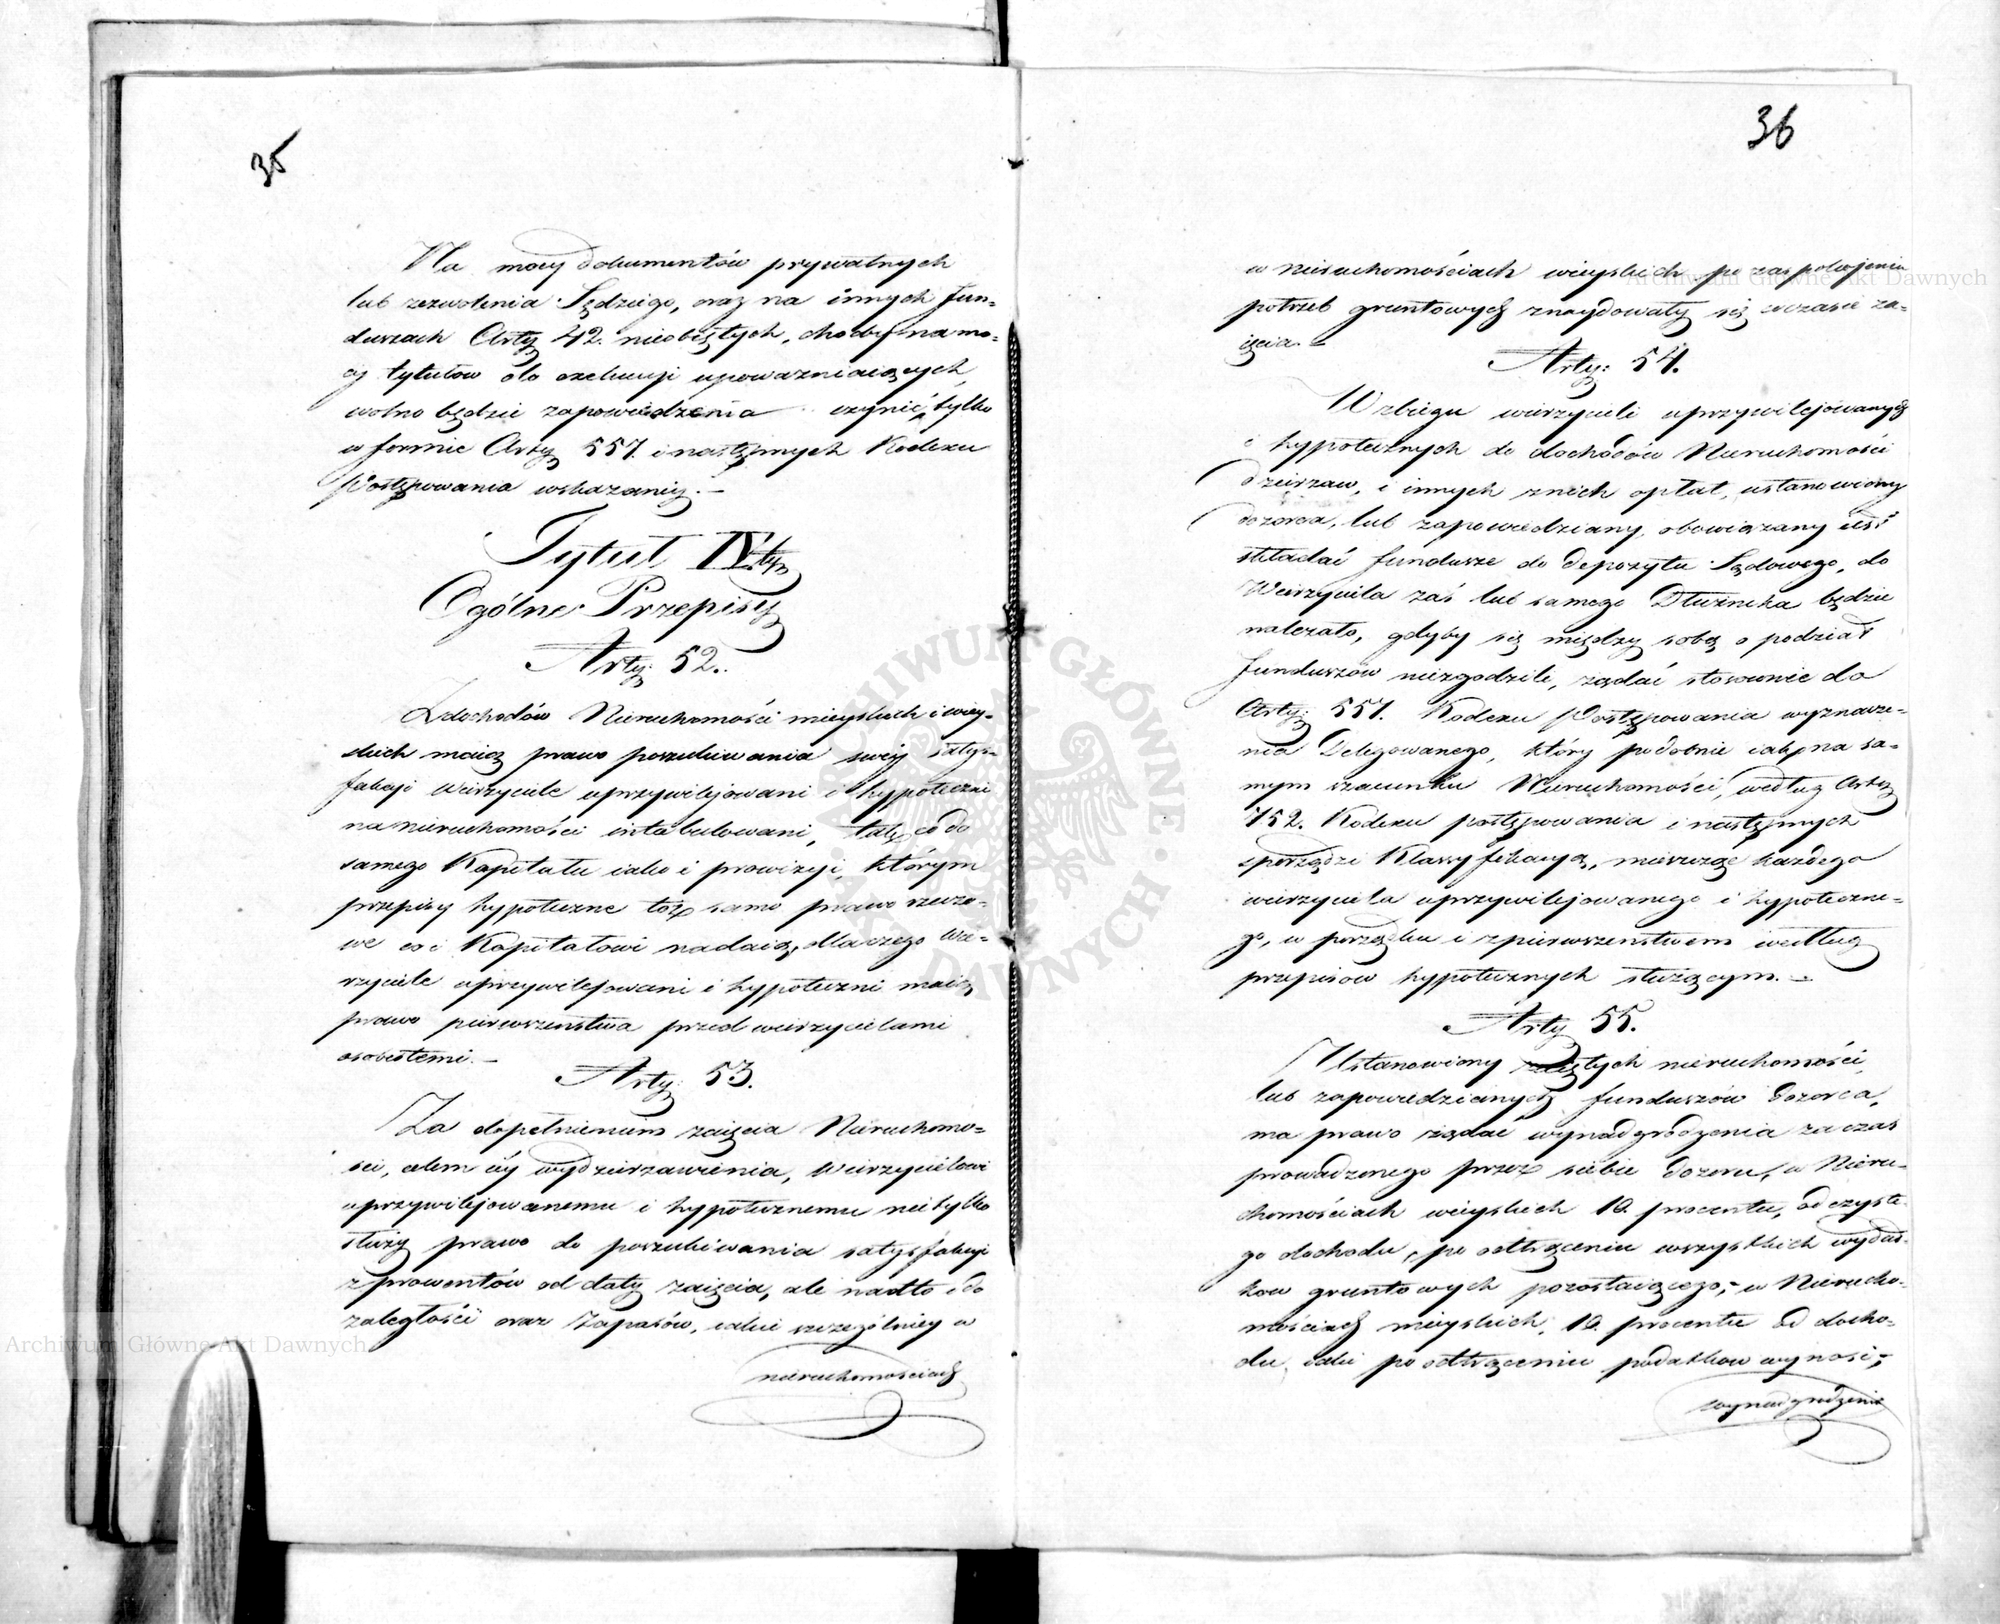 35
Na mocy dokumentów prywatnych
lub zezwolenia Sędziego, oraz na innych fun-
duszach Arty 42. nieobiętych, choćby na mo-
cy tytułów do exekucyi upoważniaiących,
wolno będzie zapowiedzenia czynić, tylko
w formie Arty 557. i następnych Kodexu
Postępowania wskazaniy. –
Tytuł IV.ty
Ogólne Przepisy
Arty. 52.
Z dochodów Nieruchomości mieyskich i wiey-
skich maią prawo poszukiwania swéy satys-
fakcyi wierzyciele uprzywilejowani i hypoteczni
na nieruchomości intabulowani, tak co do
samego Kapitału iako i prowizyi, którym
przepisy hypoteczne toż samo prawo rzeczo-
we co i Kapitałowi nadaią, dla czego wie-
rzyciele uprzywilejowani i hypoteczni maią
prawo pierwszeństwa przed wierzycielami
osobistemi. –
Arty. 53.
Za dopełnieniem zaięcia Nieruchomo-
ści, celem iéy wydzierżawienia, Wierzycielowi
uprzywilejowanemu i hypotecznemu nietylko
służy prawo do poszukiwania satysfakcyi
z prowentów od daty zaięcia, ale nadto i do
zaległości oraz Zapasów, iakie szczególniey w
nieruchomościach
36
w nieruchomościach wieyskich po zaspokojeniu
potrzeb gruntowych znaydowały się w czasie za-
ięcia. –
Arty: 54.
W zbiegu wierzycieli uprzywilejowanych
i hypotecznych do dochodów Nieruchomości
dzierżaw, i innych z nich opłat, ustanowiony
dozorca, lub zapowiedziany, obowiązany iest
składać fundusze do depozytu Sądowego, do
Wierzyciela zaś lub samego Dłużnika będzie
należało, gdyby się między sobą o podział
funduszów niezgodzili, żądać stosownie do
Arty: 557. Kodexu Postępowania wyznacze-
nia Delegowanego, który podobnie iak na sa-
mym szacunku Nieruchomości, według Arty
752. Kodexu postępowania i następnych
sporządzi Klassyfikacyą, mieszcząc każdego
wierzyciela uprzywilejowanego i hypoteczne-
go, w porządku i z pierwszeństwem według
przepisów hypotecznych służącym. –
Arty 55.
Ustanowiony zaiętych nieruchomości,
lub zapowiedzianych funduszów Dozorca,
ma prawo żądać wynadgrodzenia za czas
prowadzonego przez siebie Dozoru, w Nieru-
chomościach wieyskich 10. procentu, od czyste-
go dochodu, po odtrąceniu wszystkich wydat-
ków gruntowych pozostaiącego; – w Nierucho-
mościach mieyskich, 10. procentu od docho-
du, iaki po odtrąceniu podatków wynosi; –
wynadgrodzenie
ARCHIWUM GŁÓWNE AKT DAWNYCH
Archiwum Główne Akt Dawnych
Archiwum Główne Akt Dawnych